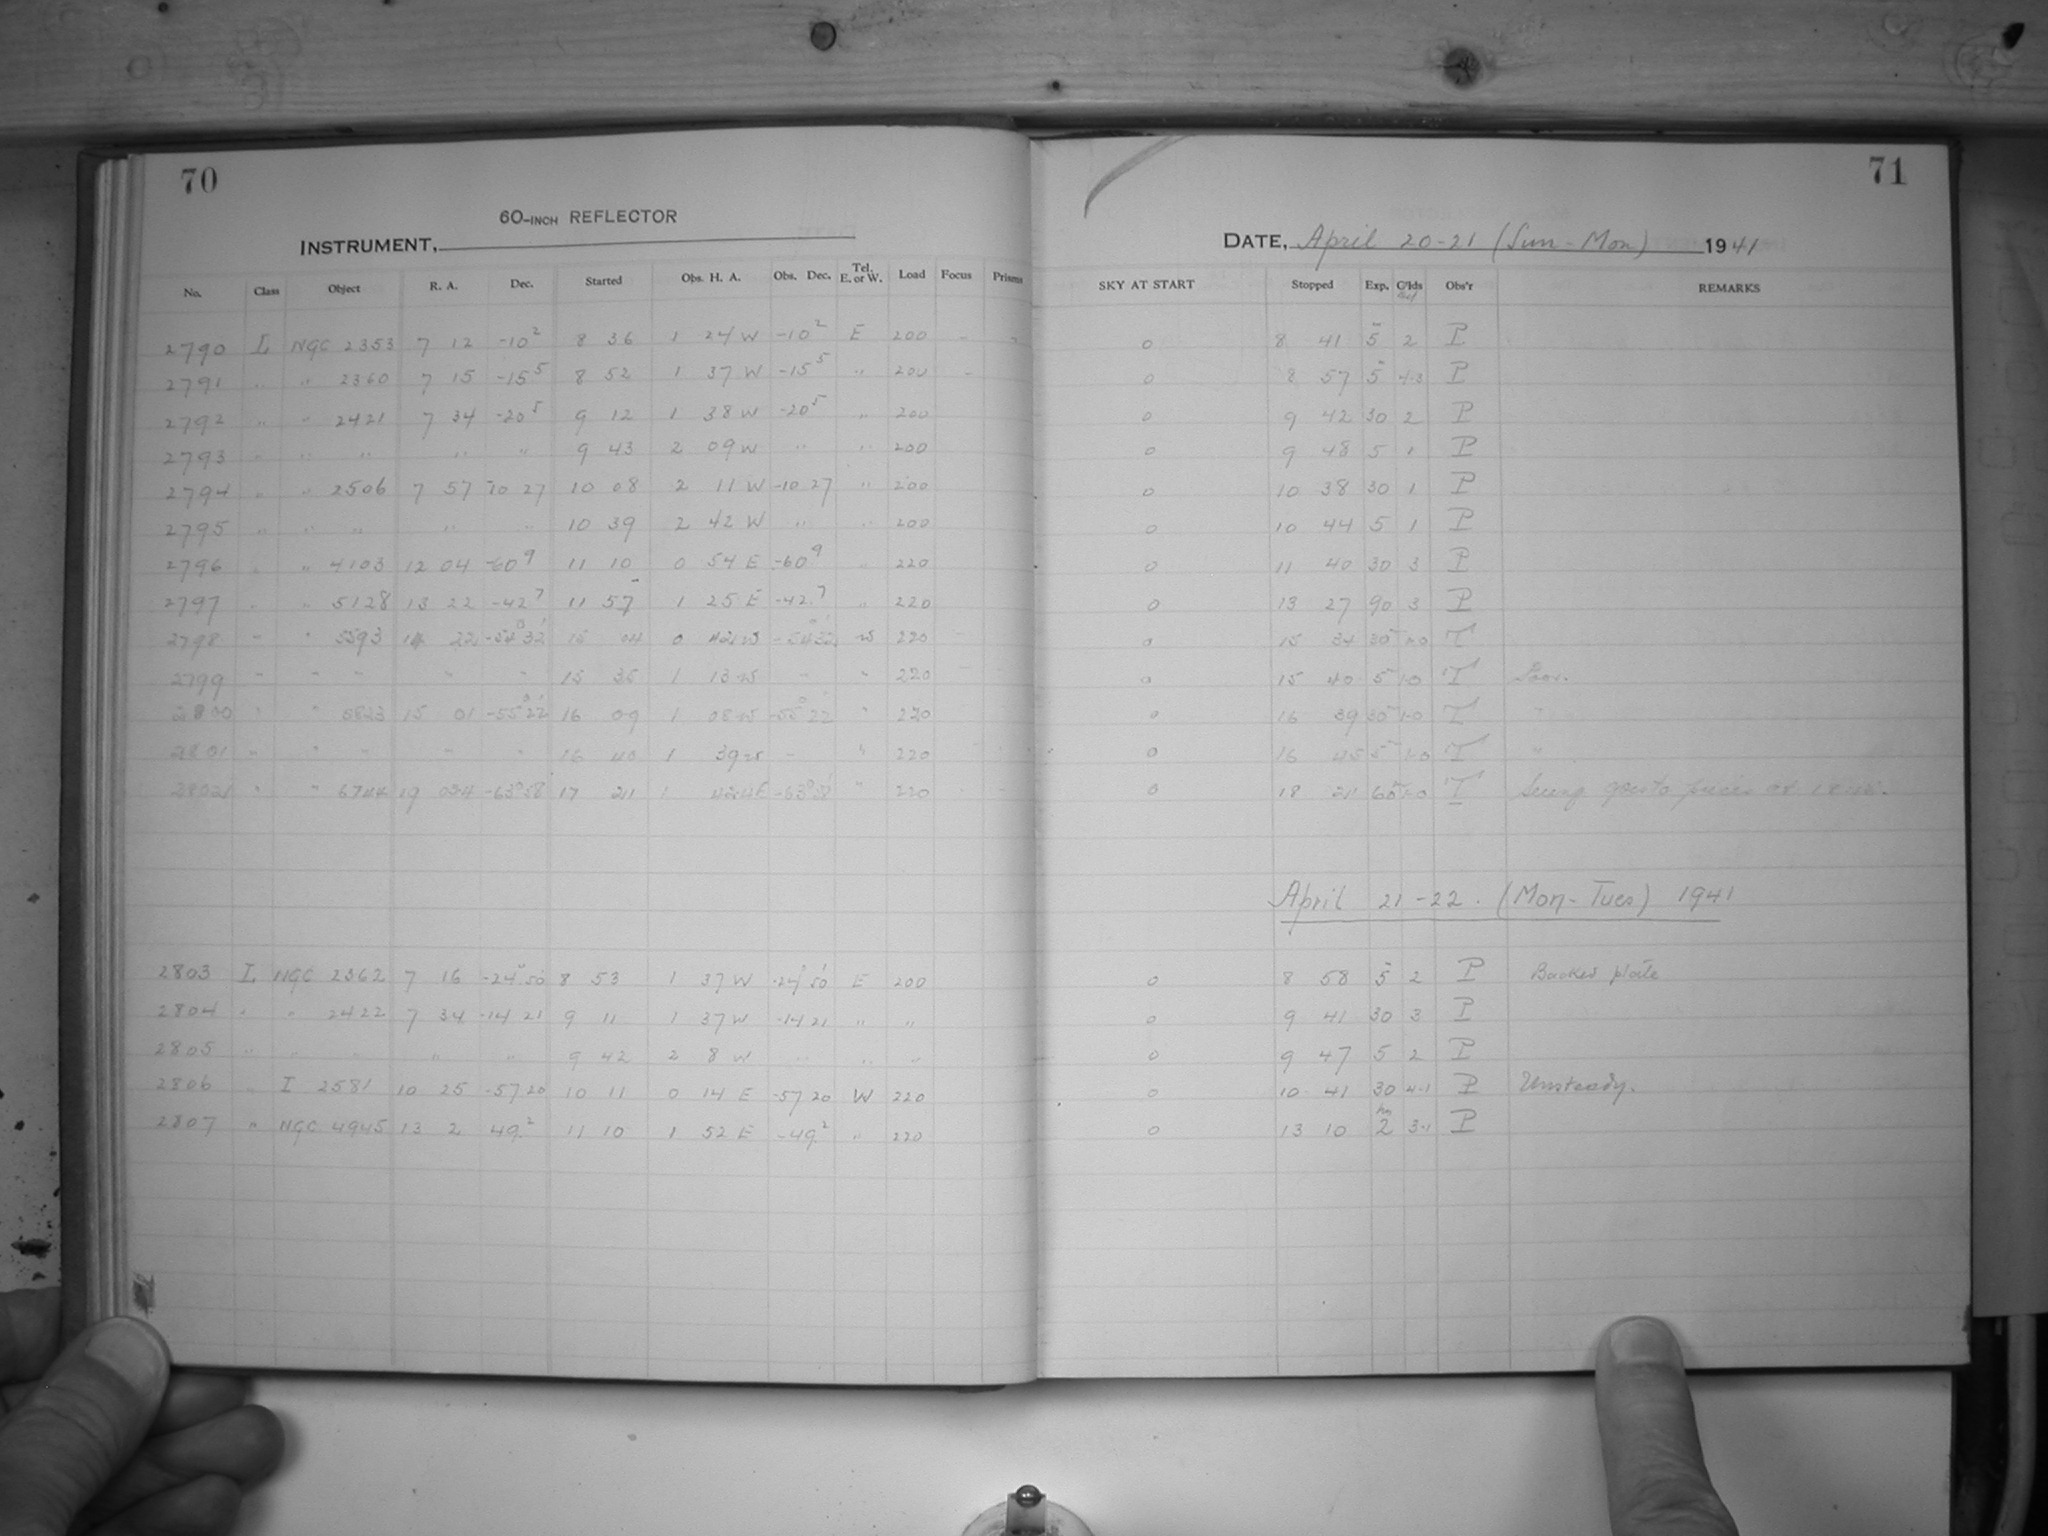 70
60-INCH REFLECTOR
INSTRUMENT,
No. Class Object R. A. Dec. Started Obs. H. A. Obs. Dec. Tel. E. or W. Load Focus Prisms
2790 L NGC 2353 7 12 -10² 8 36 1 24 W -10² E 200
2791 " " 2360 7 15 -15⁵ 8 52 1 37 W -15⁵ " 200
2792 " " 2421 7 34 -20⁵ 9 12 1 38 W -20⁵ " 200
2793 " " " " " 9 43 2 09 W " " 200
2794 " " 2506 7 57 -10 27 10 08 2 11 W -10 27 " 200
2795 " " " " " 10 39 2 42 W " " 200
2796 " " 4103 12 04 -60⁹ 11 10 0 54 E -60⁹ " 220
2797 " " 5128 13 22 -42⁷ 11 57 1 25 E -42.⁷ " 220
2798 " " 5593 14 22 -54°32' 15 04 0 42 W -54°32' W 220
2799 " " " " " 15 35 1 13 W " " 220
2800 " " 5823 15 01 -55°22' 16 09 1 08 W -55°22' " 220
2801 " " " " " 16 40 1 39 W " " 220
2802 " " 6744 19 -63°58' 17 1 -63°58' " 220
2803 L NGC 2362 7 16 -24°50' 8 53 1 37 W -24°50' E 200
2804 " " 2422 7 34 -14 21 9 11 1 37 W -14 21 " "
2805 " " " " " 9 42 2 8 W " " "
2806 " I 2581 10 25 -57 20 10 11 0 14 E -57 20 W 220
2807 " NGC 4945 13 2 49.² 11 10 1 52 E -49.² " 220
71
DATE, April 20-21 (Sun-Mon) 1941
SKY AT START Stopped Exp. C'lds Obs'r REMARKS
0 8 41 5 2 P
0 8 57 5 4-3 P
0 9 42 30 2 P
0 9 48 5 1 P
0 10 38 30 1 P
0 10 44 5 1 P
0 11 40 30 3 P
0 13 27 90 3 P
0 15 34 30 T
0 15 40 5 1-0 T Poor.
0 16 39 30 1-0 T "
0 16 45 5 1-0 T "
0 18 T Seeing goes to pieces at
April 21-22. (Mon-Tues) 1941
0 8 58 5 2 P Backed plate
0 9 41 30 3 P
0 9 47 5 2 P
0 10 41 30 4-1 P Unsteady.
0 13 10 2 hrs 3-1 P